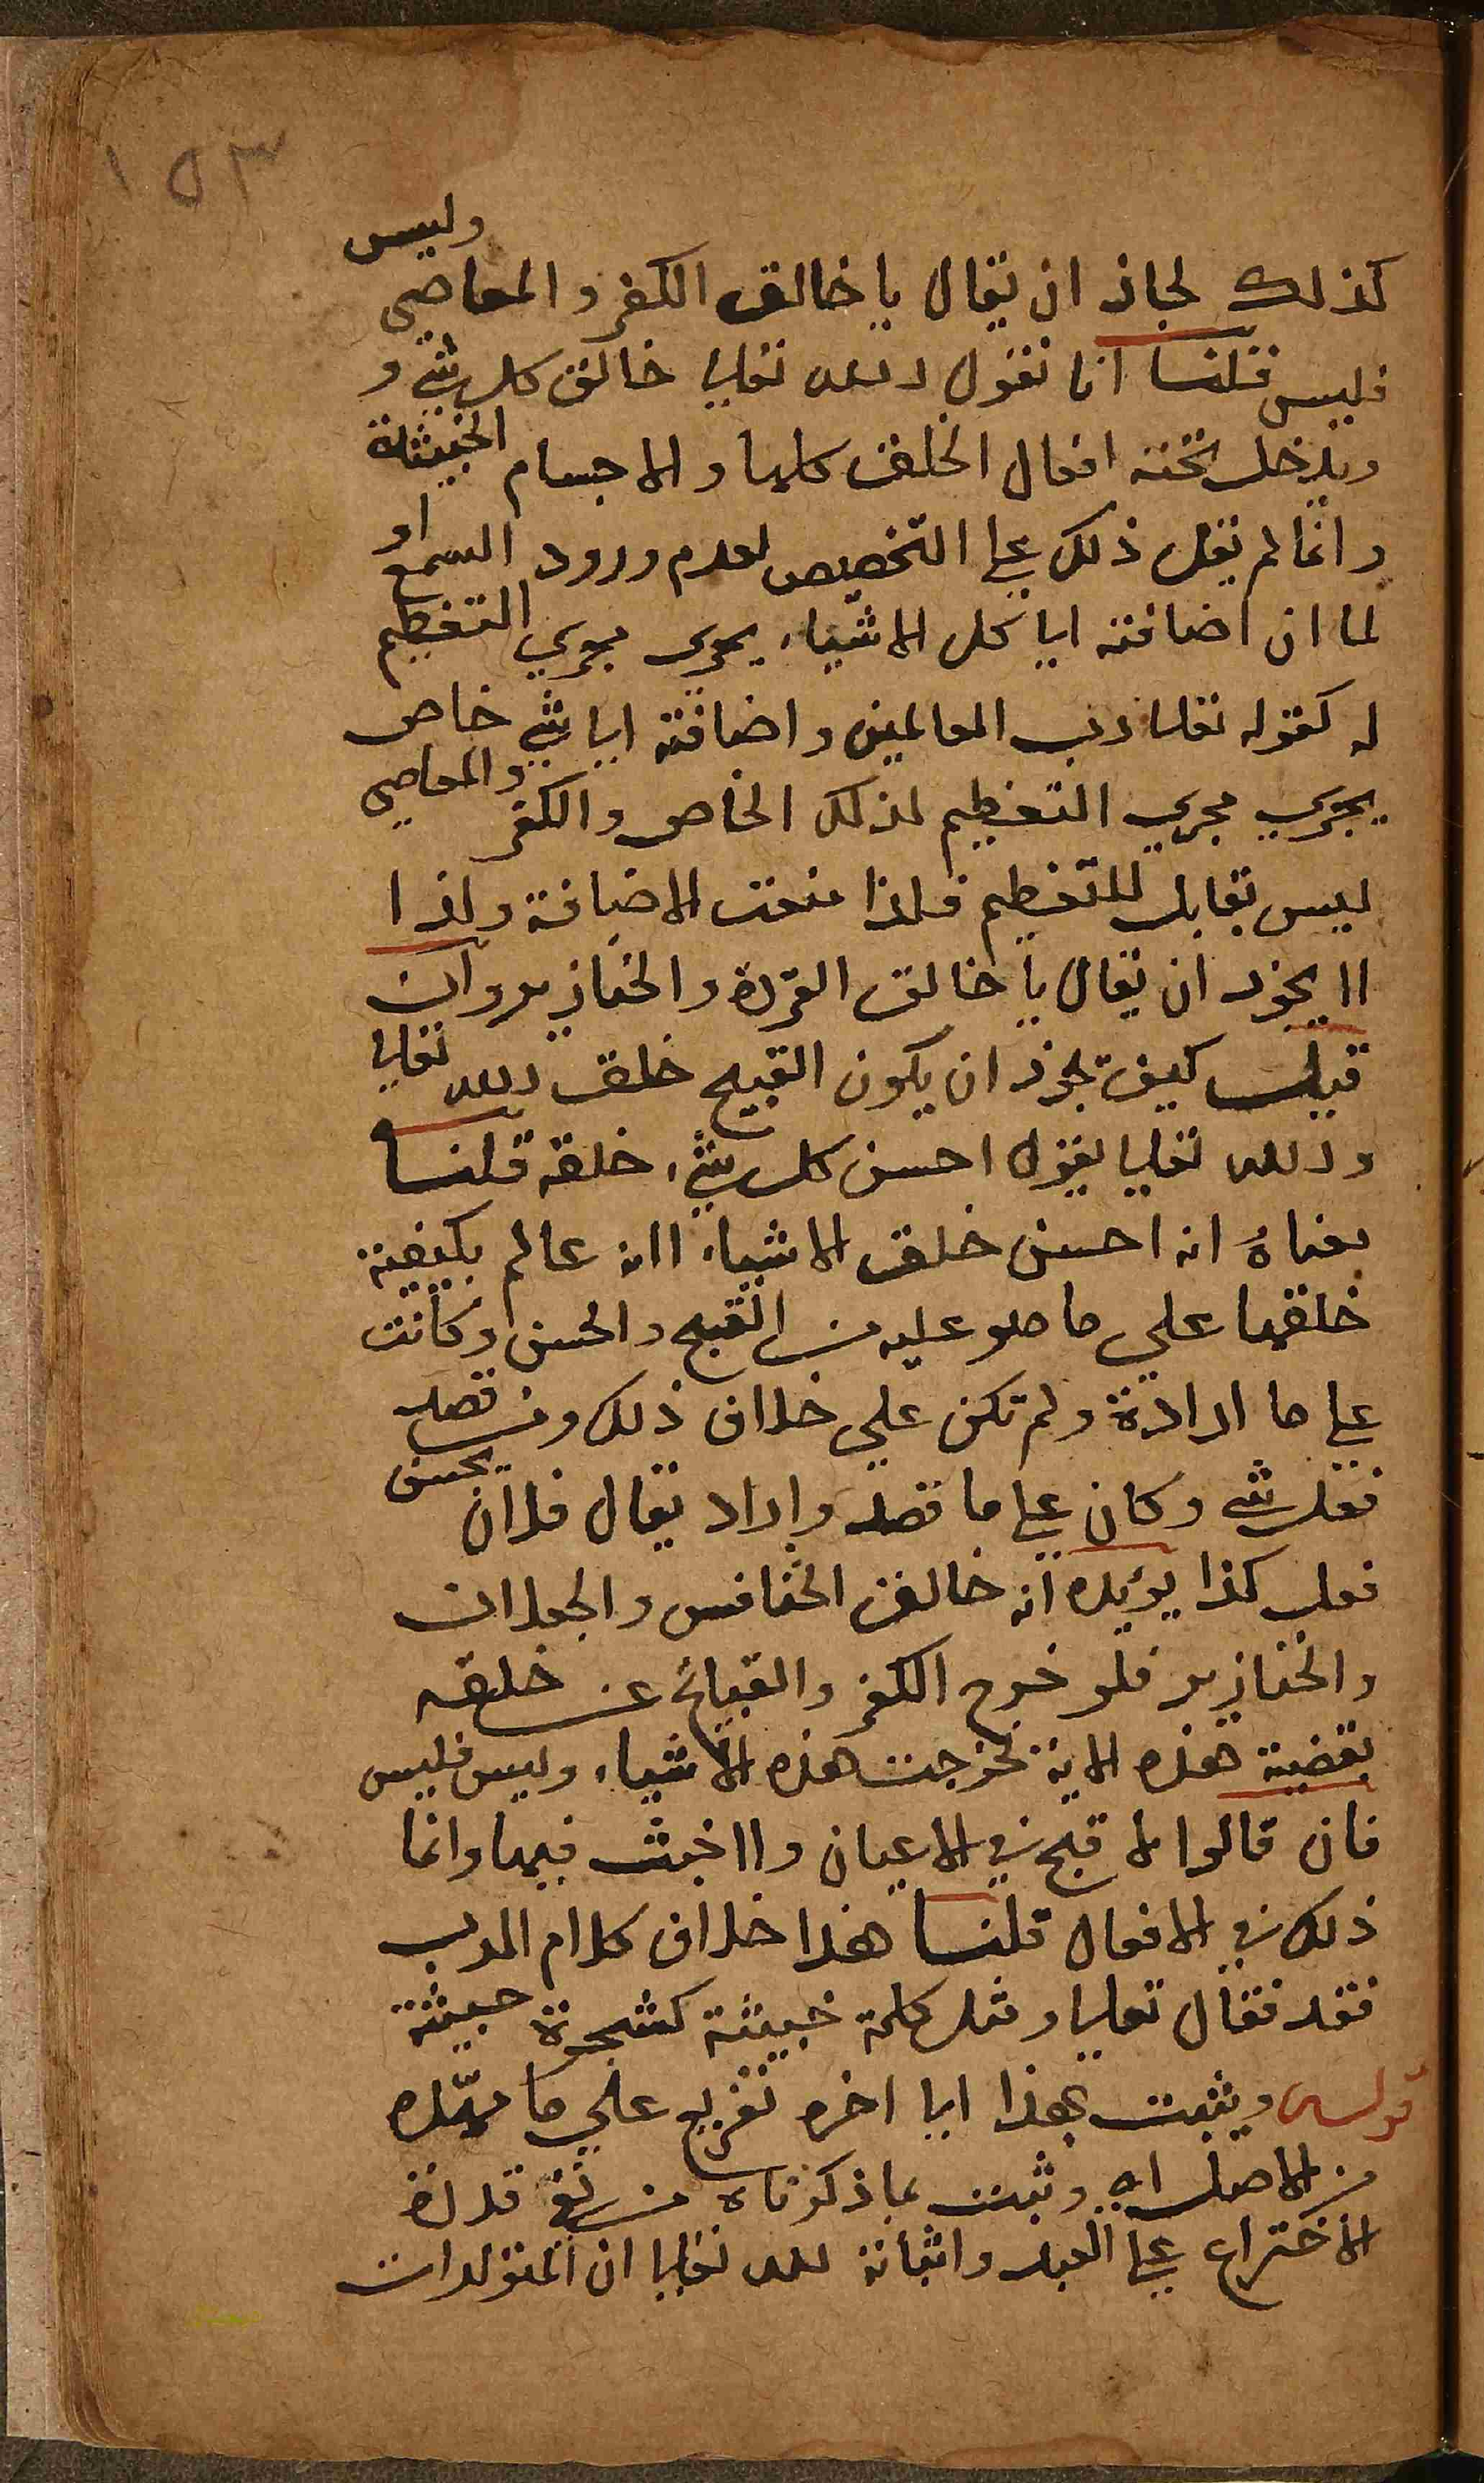 ١٥٣
كذلك لجاز ان يقال يا خالق الكفر والمعاصي وليس
فليس قلنا انا نقول الله تعالى خالق كل شي و
ويدخل تحته افعال الخلق كلها والاجسام الخبيثة
وانما لم يقل ذلك على التخصيص لعدم ورود السمع او
لما ان اضافته الى كل الاشياء يجرى مجري التعظيم
له كقوله تعالى رب العالمين واضافته الى شي خاص
يجري مجري التعظيم لذلك الخاص والكفر والمعاصي
ليس بقابل للتعظيم فلذا منعت الاضافة ولذا
لا يجوز ان يقال يا خالق القردة والخنازير وان
قيل كيف يجوز ان يكون القبيح خلق الله تعالى
والله تعالى يقول احسن كل شيء خلقه قلنا
معناهُ انه احسن خلق الاشياء لانه عالم بكيفية
خلقها علي ما هو عليه من القبح والحسن وكانت
على ما ارادة ولم تكن علي خلاف ذلك ومن قصد
فعل شي وكان على ما قصد واراد يقال فلان يحسن
فعل كذا يؤيده انه خالق الخنافس والجعلان
والخنازير فلو خرج الكفر والقبائح عن خلقه
بقضية هذه الاية لخرجت هذه الاشياء وليس فليس
فان قالوا لا قبح في الاعيان ولا خبث فيها وانما
ذلك في الافعال قلنا هذا خلاف كلام الرب
فقد فقال تعالى ومثل كلمة خبيثة كشجرة خبيثة
قوله ويثبت بهذا الى اخره تفريع علي ما مهّده
من الاصل اي وثبت بما ذكرناه من نفي قدرة
الاختراع على العبد واثباته لله تعالى ان المتولدات